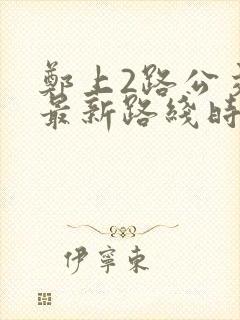 鄭上2路公
最新路綫時
伊寧東